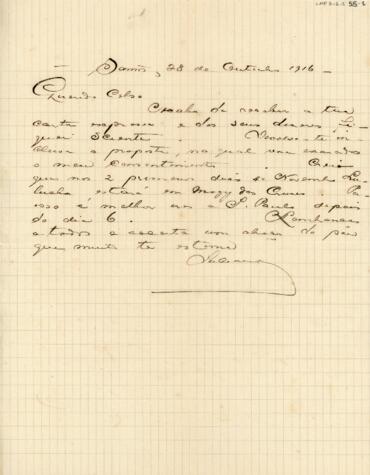 55-2
Santos, 28 de Outubro 1916
Querido Celso
Acabo de receber a tua
carta expressa e dos seus dizeres fi-
quei sciente. in-
clusa a proposta, na qual vae exarado
o meu consentimento. Creio
que nos 2 primeiros dias de Novembro
estará em Mogy das Cruzes. P.
isso é melhor a S. Paulo depois
do dia 6. Lembranças
a todos e acceita um abraço do pae
que muito te estima